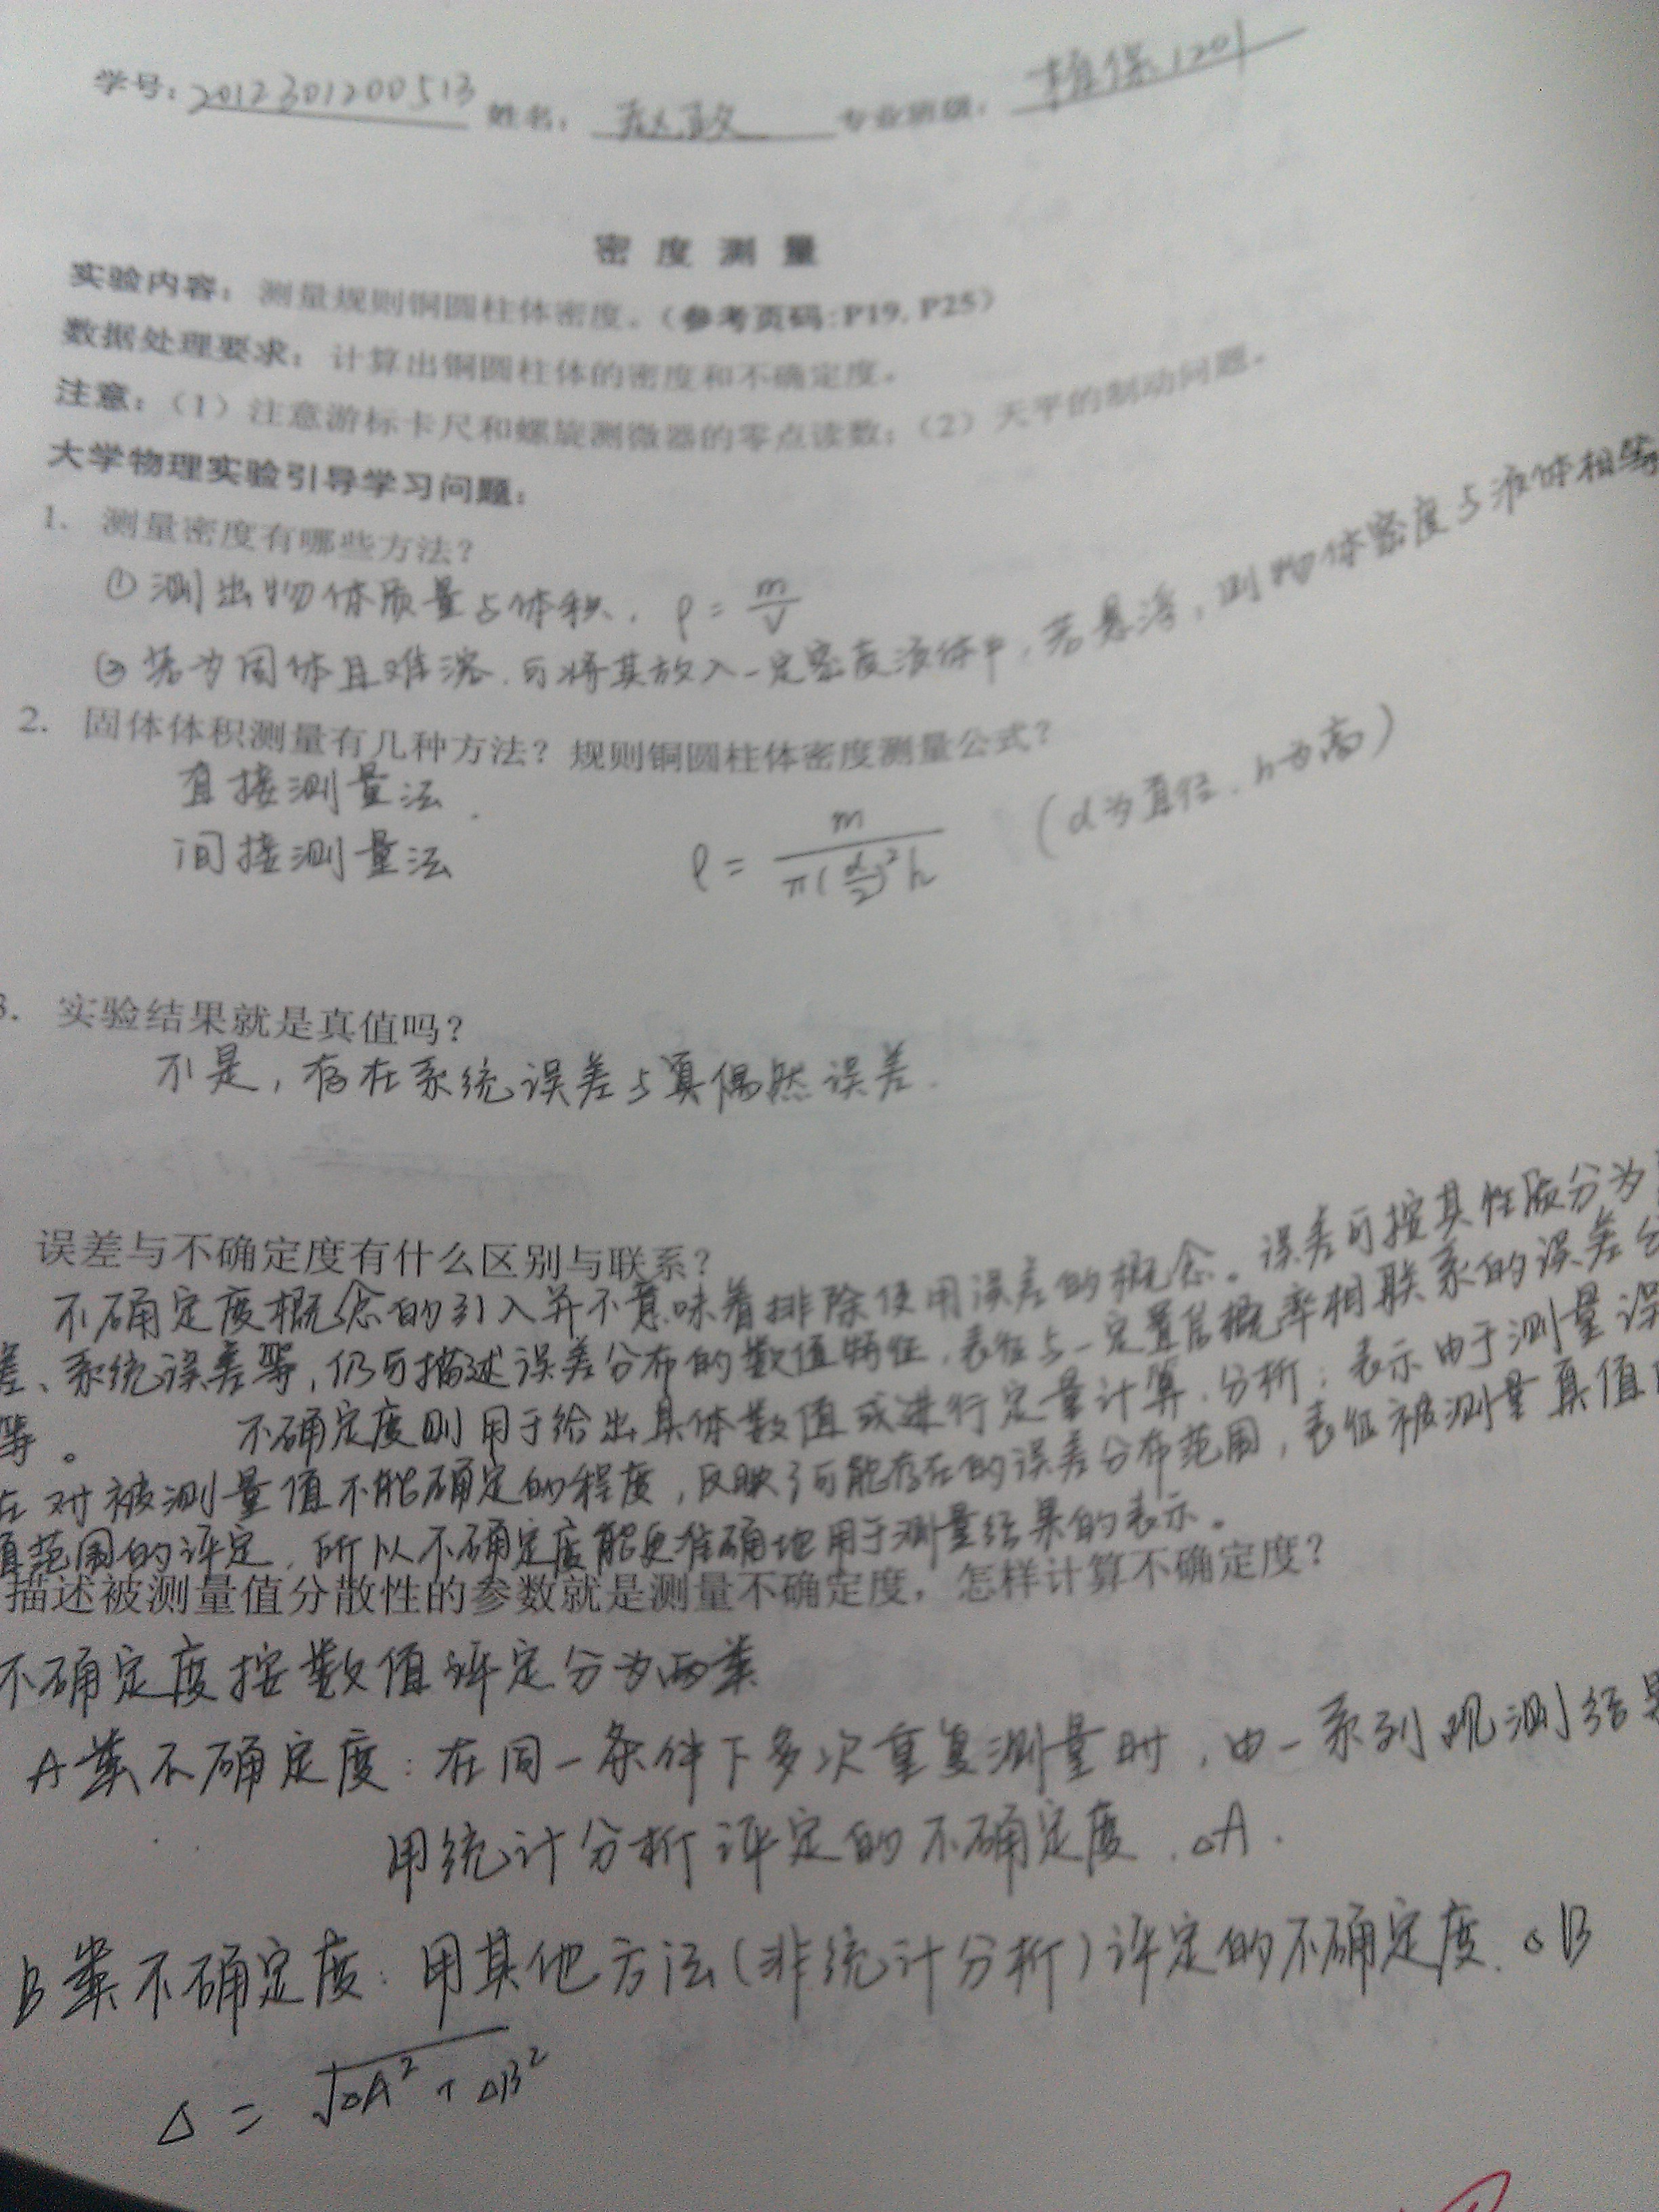 学号：2012301200513 姓名：赵政 专业班级：植保1201
密 度 测 量
实验内容：测量规则铜圆柱体密度。（参考页码:P19，P25）
数据处理要求：计算出铜圆柱体的密度和不确定度。
注意：（1）注意游标卡尺和螺旋测微器的零点读数；（2）天平的制动问题。
大学物理实验引导学习问题：
1. 测量密度有哪些方法？
① 测出物体质量与体积，ρ = m/V
② 若为固体且难溶，可将其放入一定密度液体中，若悬浮，则物体密度与液体相等
2. 固体体积测量有几种方法？规则铜圆柱体密度测量公式？
直接测量法
间接测量法 ρ = m/(π(d/2)²h) (d为直径，h为高)
3. 实验结果就是真值吗？
不是，存在系统误差与偶然误差.
误差与不确定度有什么区别与联系？
不确定度概念的引入并不意味着排除使用误差的概念。误差可按其性质分为
差、系统误差等，仍可描述误差分布的数值特征，表征与一定置信概率相联系的误差分
等。 不确定度则用于给出具体数值或进行定量计算、分析；表示由于测量误
在对被测量值不能确定的程度，反映了可能存在的误差分布范围，表征被测量真值
值范围的评定，所以不确定度能更准确地用于测量结果的表示。
描述被测量值分散性的参数就是测量不确定度，怎样计算不确定度？
不确定度按数值评定分为两类
A类不确定度：在同一条件下多次重复测量时，由一系列观测结果
用统计分析评定的不确定度，△A.
B类不确定度：用其他方法(非统计分析)评定的不确定度.△B
△ = √△A² + △B²